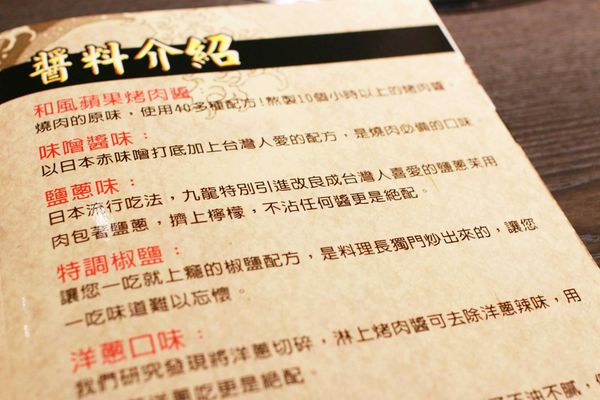 醬料介紹
和風蘋果烤肉醬
燒肉的原味，使用40多種配方!熬製10個小時以上的烤肉醬。
味噌醬味：
以日本赤味噌打底加上台灣人愛的配方，是燒肉必備的口味
鹽蔥味：
日本流行吃法，九龍特別引進改良成台灣人喜愛的鹽蔥芙用
肉包著鹽蔥，擠上檸檬，不沾任何醬更是絕配。
特調椒鹽：
讓您一吃就上癮的椒鹽配方，是料理長獨門炒出來的，讓您
一吃味道難以忘懷。
洋蔥口味：
我們研究發現將洋蔥切碎，淋上烤肉醬可去除洋蔥辣味，用
洋蔥吃更是絕配。
不油不膩，